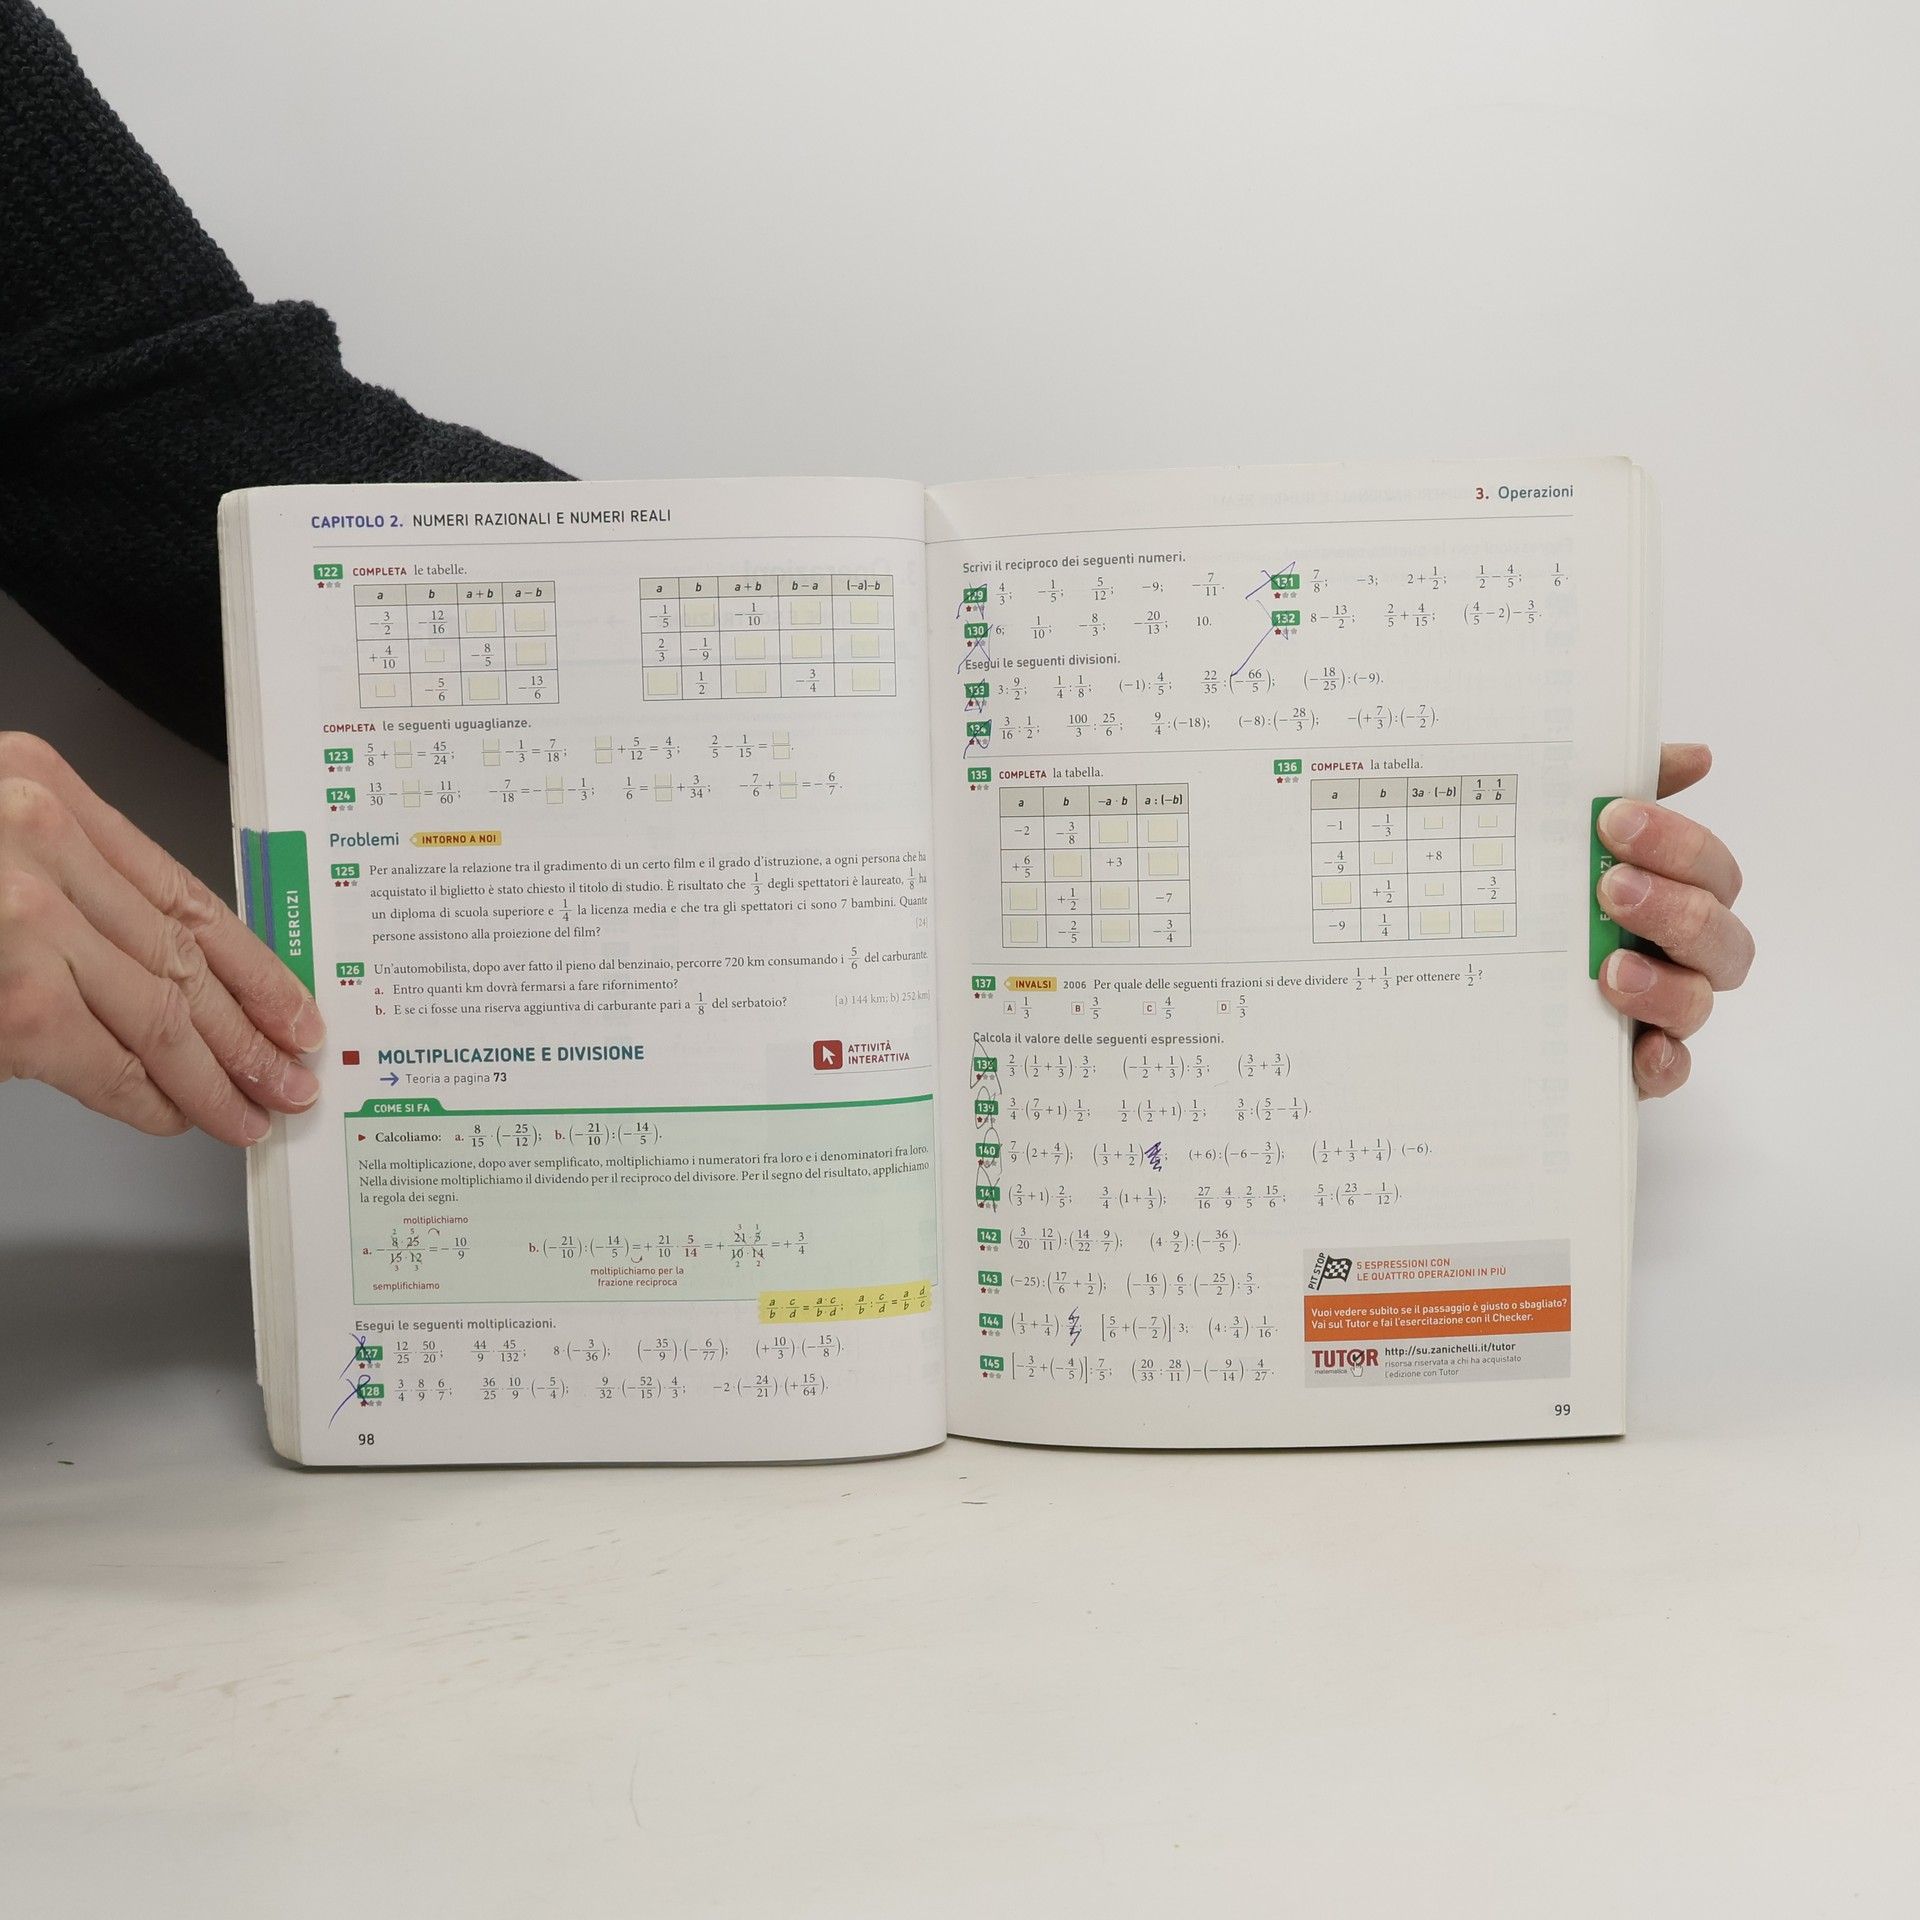 CAPITOLO 2. NUMERI RAZIONALI E NUMERI REALI
122 COMPLETA le tabelle.
a b a+b a−b
−3/2 −12/16
+4/10 −8/5
−5/6 −13/6
a b a+b b−a (−a)−b
−1/5 −1/10
2/3 −1/9
1/2 −3/4
COMPLETA le seguenti uguaglianze.
123 5/8 + □/□ = 45/24; □/□ − 1/3 = 7/18; □/□ + 5/12 = 4/3; 2/5 − 1/15 = □/□.
124 13/30 − □/□ = 11/60; −7/18 = −□/□ − 1/3; 1/6 = □/□ + 3/34; −7/6 + □/□ = −6/7.
Problemi INTORNO A NOI
125 Per analizzare la relazione tra il gradimento di un certo film e il grado d'istruzione, a ogni persona che ha
acquistato il biglietto è stato chiesto il titolo di studio. È risultato che 1/3 degli spettatori è laureato, 1/8 ha
un diploma di scuola superiore e 1/4 la licenza media e che tra gli spettatori ci sono 7 bambini. Quante
persone assistono alla proiezione del film? [24]
126 Un'automobilista, dopo aver fatto il pieno dal benzinaio, percorre 720 km consumando i 5/6 del carburante.
a. Entro quanti km dovrà fermarsi a fare rifornimento?
b. E se ci fosse una riserva aggiuntiva di carburante pari a 1/8 del serbatoio? [a) 144 km; b) 252 km]
MOLTIPLICAZIONE E DIVISIONE
→ Teoria a pagina 73
ATTIVITÀ
INTERATTIVA
COME SI FA
▶ Calcoliamo: a. 8/15 · (−25/12); b. (−21/10) : (−14/5).
Nella moltiplicazione, dopo aver semplificato, moltiplichiamo i numeratori fra loro e i denominatori fra loro.
Nella divisione moltiplichiamo il dividendo per il reciproco del divisore. Per il segno del risultato, applichiamo
la regola dei segni.
moltiplichiamo
a. −8·25/15·12 = −10/9
semplifichiamo
b. (−21/10) : (−14/5) = +21/10 · 5/14 = +21·5/10·14 = +3/4
moltiplichiamo per la
frazione reciproca
a/b · c/d = a·c/b·d; a/b : c/d = a/b · d/c
Esegui le seguenti moltiplicazioni.
127 12/25 · 50/20; 44/9 · 45/132; 8 · (−3/36); (−35/9) · (−6/77); (+10/3) · (−15/8).
128 3/4 · 8/9 · 6/7; 36/25 · 10/9 · (−5/4); 9/32 · (−52/15) · 4/3; −2 · (−24/21) · (+15/64).
98
ESERCIZI
3. Operazioni
Scrivi il reciproco dei seguenti numeri.
129 4/3; −1/5; 5/12; −9; −7/11.
130 6; 1/10; −8/3; −20/13; 10.
131 7/8; −3; 2+1/2; 1/2−4/5; 1/6.
132 8−13/2; 2/5+4/15; (4/5−2)−3/5.
Esegui le seguenti divisioni.
133 3 : 9/2; 1/4 : 1/8; (−1) : 4/5; 22/35 : (−66/5); (−18/25) : (−9).
134 3/16 : 1/2; 100/3 : 25/6; 9/4 : (−18); (−8) : (−28/3); −(+7/3) : (−7/2).
135 COMPLETA la tabella.
a b −a·b a:(−b)
−2 −3/8
+6/5 +3
+1/2 −7
−2/5 −3/4
136 COMPLETA la tabella.
a b 3a·(−b) 1/a · 1/b
−1 −1/3
−4/9 +8
+1/2 −3/2
−9 1/4
137 INVALSI 2006 Per quale delle seguenti frazioni si deve dividere 1/2 + 1/3 per ottenere 1/2?
A 1/3 B 3/5 C 4/5 D 5/3
Calcola il valore delle seguenti espressioni.
138 2/3 · (1/2 + 1/3) · 3/2; (−1/2 + 1/3) : 5/3; (3/2 + 3/4)
139 3/4 · (7/9 + 1) · 1/2; 1/2 · (1/2 + 1) · 1/2; 3/8 : (5/2 − 1/4).
140 7/9 · (2 + 4/7); (1/3 + 1/2) ; (+6) : (−6 − 3/2); (1/2 + 1/3 + 1/4) · (−6).
141 (2/3 + 1) · 2/5; 3/4 · (1 + 1/3); 27/16 · 4/9 · 2/5 · 15/6; 5/4 : (23/6 − 1/12).
142 (3/20 · 12/11) : (14/22 · 9/7); (4 · 9/2) : (−36/5).
143 (−25) : (17/6 + 1/2); (−16/3) · 6/5 · (−25/2) : 5/3.
144 (1/3 + 1/4) · ; [5/6 + (−7/2)] · 3; (4 : 3/4) · 1/16.
145 [−3/2 + (−4/5)] : 7/5; (20/33 : 28/11) − (−9/14) · 4/27.
PIT STOP
5 ESPRESSIONI CON
LE QUATTRO OPERAZIONI IN PIÙ
Vuoi vedere subito se il passaggio è giusto o sbagliato?
Vai sul Tutor e fai l'esercitazione con il Checker.
TUTOR
matematica
http://su.zanichelli.it/tutor
risorsa riservata a chi ha acquistato
l'edizione con Tutor
99